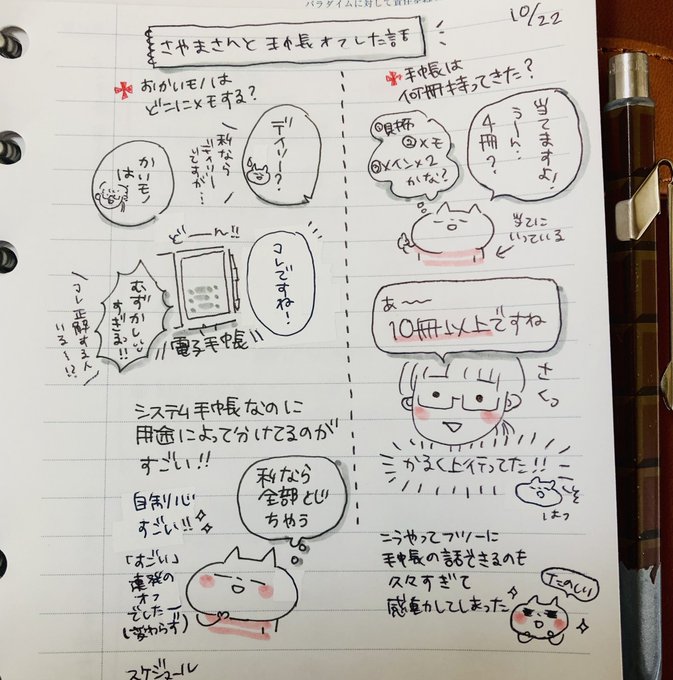 パラダイムに対して
10/22
さやまさんと手帳オフした話
おかいモノは
どこにメモする?
デイリー?
私なら
デイリー
ですが…
かいモノ
は〜
どーん!!
コレですね!
電子手帳
むずかしい
すぎるっ!!
コレ正解する人
いる〜!?
システム手帳なのに
用途によって分けてるのが
すごい!!
自制心
すごい!!
私なら
全部とじ
ちゃう
「すごい」
連発の
オフ
でした
(変わらず)
スケジュール
手帳は
何冊持ってきた?
当てますよ!
うーん…
4冊?
①財布
②メモ
③メイン×2
かな?
当てに
いっている
あ〜〜
10冊以上ですね
さくっ
かるく上行ってた!!
こうやってフツーに
手帳の話できるのも
久々すぎて
感動してしまった
たのしい